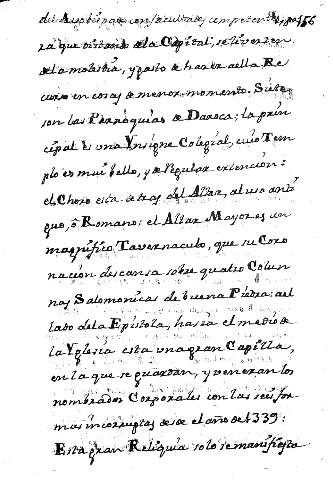 del Arzobispado con facultades competentes 156
rá que distando de la Capital, se liverten
de la molestia, y gasto de hazer a ella Re
curso en cosas de menor momento. Siete
son las Parroquias de Daroca; la prin
cipal es una Ynsigne Colegial, cuio Tem
plo es mui bello, y de Regular extención:
el Choro esta detras del Altar, al uso anti
guo, ō Romano: el Altar Mayor es un
magnifico Tavernaculo, que su Coro
nación descansa sobre quatro Colum
nas Salomonicas de buena Piedra: al
lado de la Epistola, hasia el medio de
la Yglesia esta una gran Capilla,
en la que se guardan, y veneran los
nombrados Corporales con las seis for
mas incorruptas desde el año de 1339:
Esta gran Reliquia solo se manifiesta